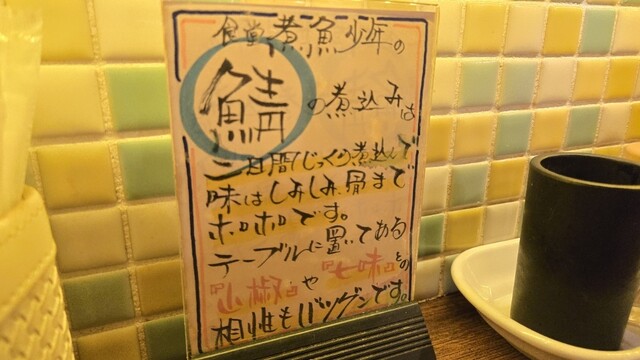 食堂煮魚少年の
鯖の煮込みは
三日間じっくり煮込んで
味はしみしみ、骨まで
ホロホロです。
テーブルに置いてある
『山椒』や『七味』との
相性もバツグンです。